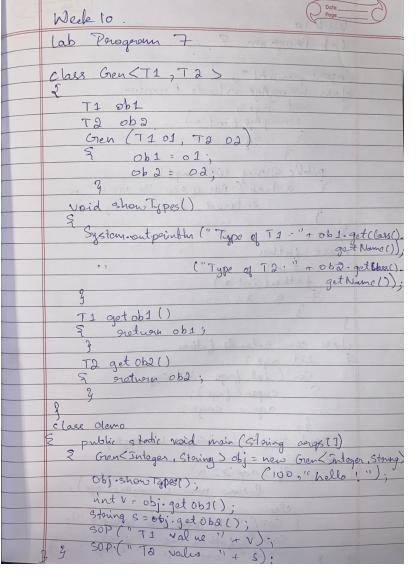 Date
Page
Week 10.
Lab Program 7
class Gen<T1, T2>
{
T1 ob1
T2 ob2
Gen (T1 o1, T2 o2)
{ ob1 = o1;
ob2 = o2;
}
void showTypes()
{
System.out.println("Type of T1 : "+ ob1.getClass().
getName());
" ("Type of T2 : "+ ob2.getClass().
getName());
}
T1 getob1()
{ return ob1;
}
T2 getOb2()
{ return ob2;
}
}
class demo
{ public static void main(String args[])
{ Gen<Integer, String> obj = new Gen<Integer, String>
(100, "hello!");
Obj.showTypes();
int v = obj.getOb1();
String s = obj.getOb2();
SOP(" T1 value " + v);
} } SOP(" T2 value " + s);